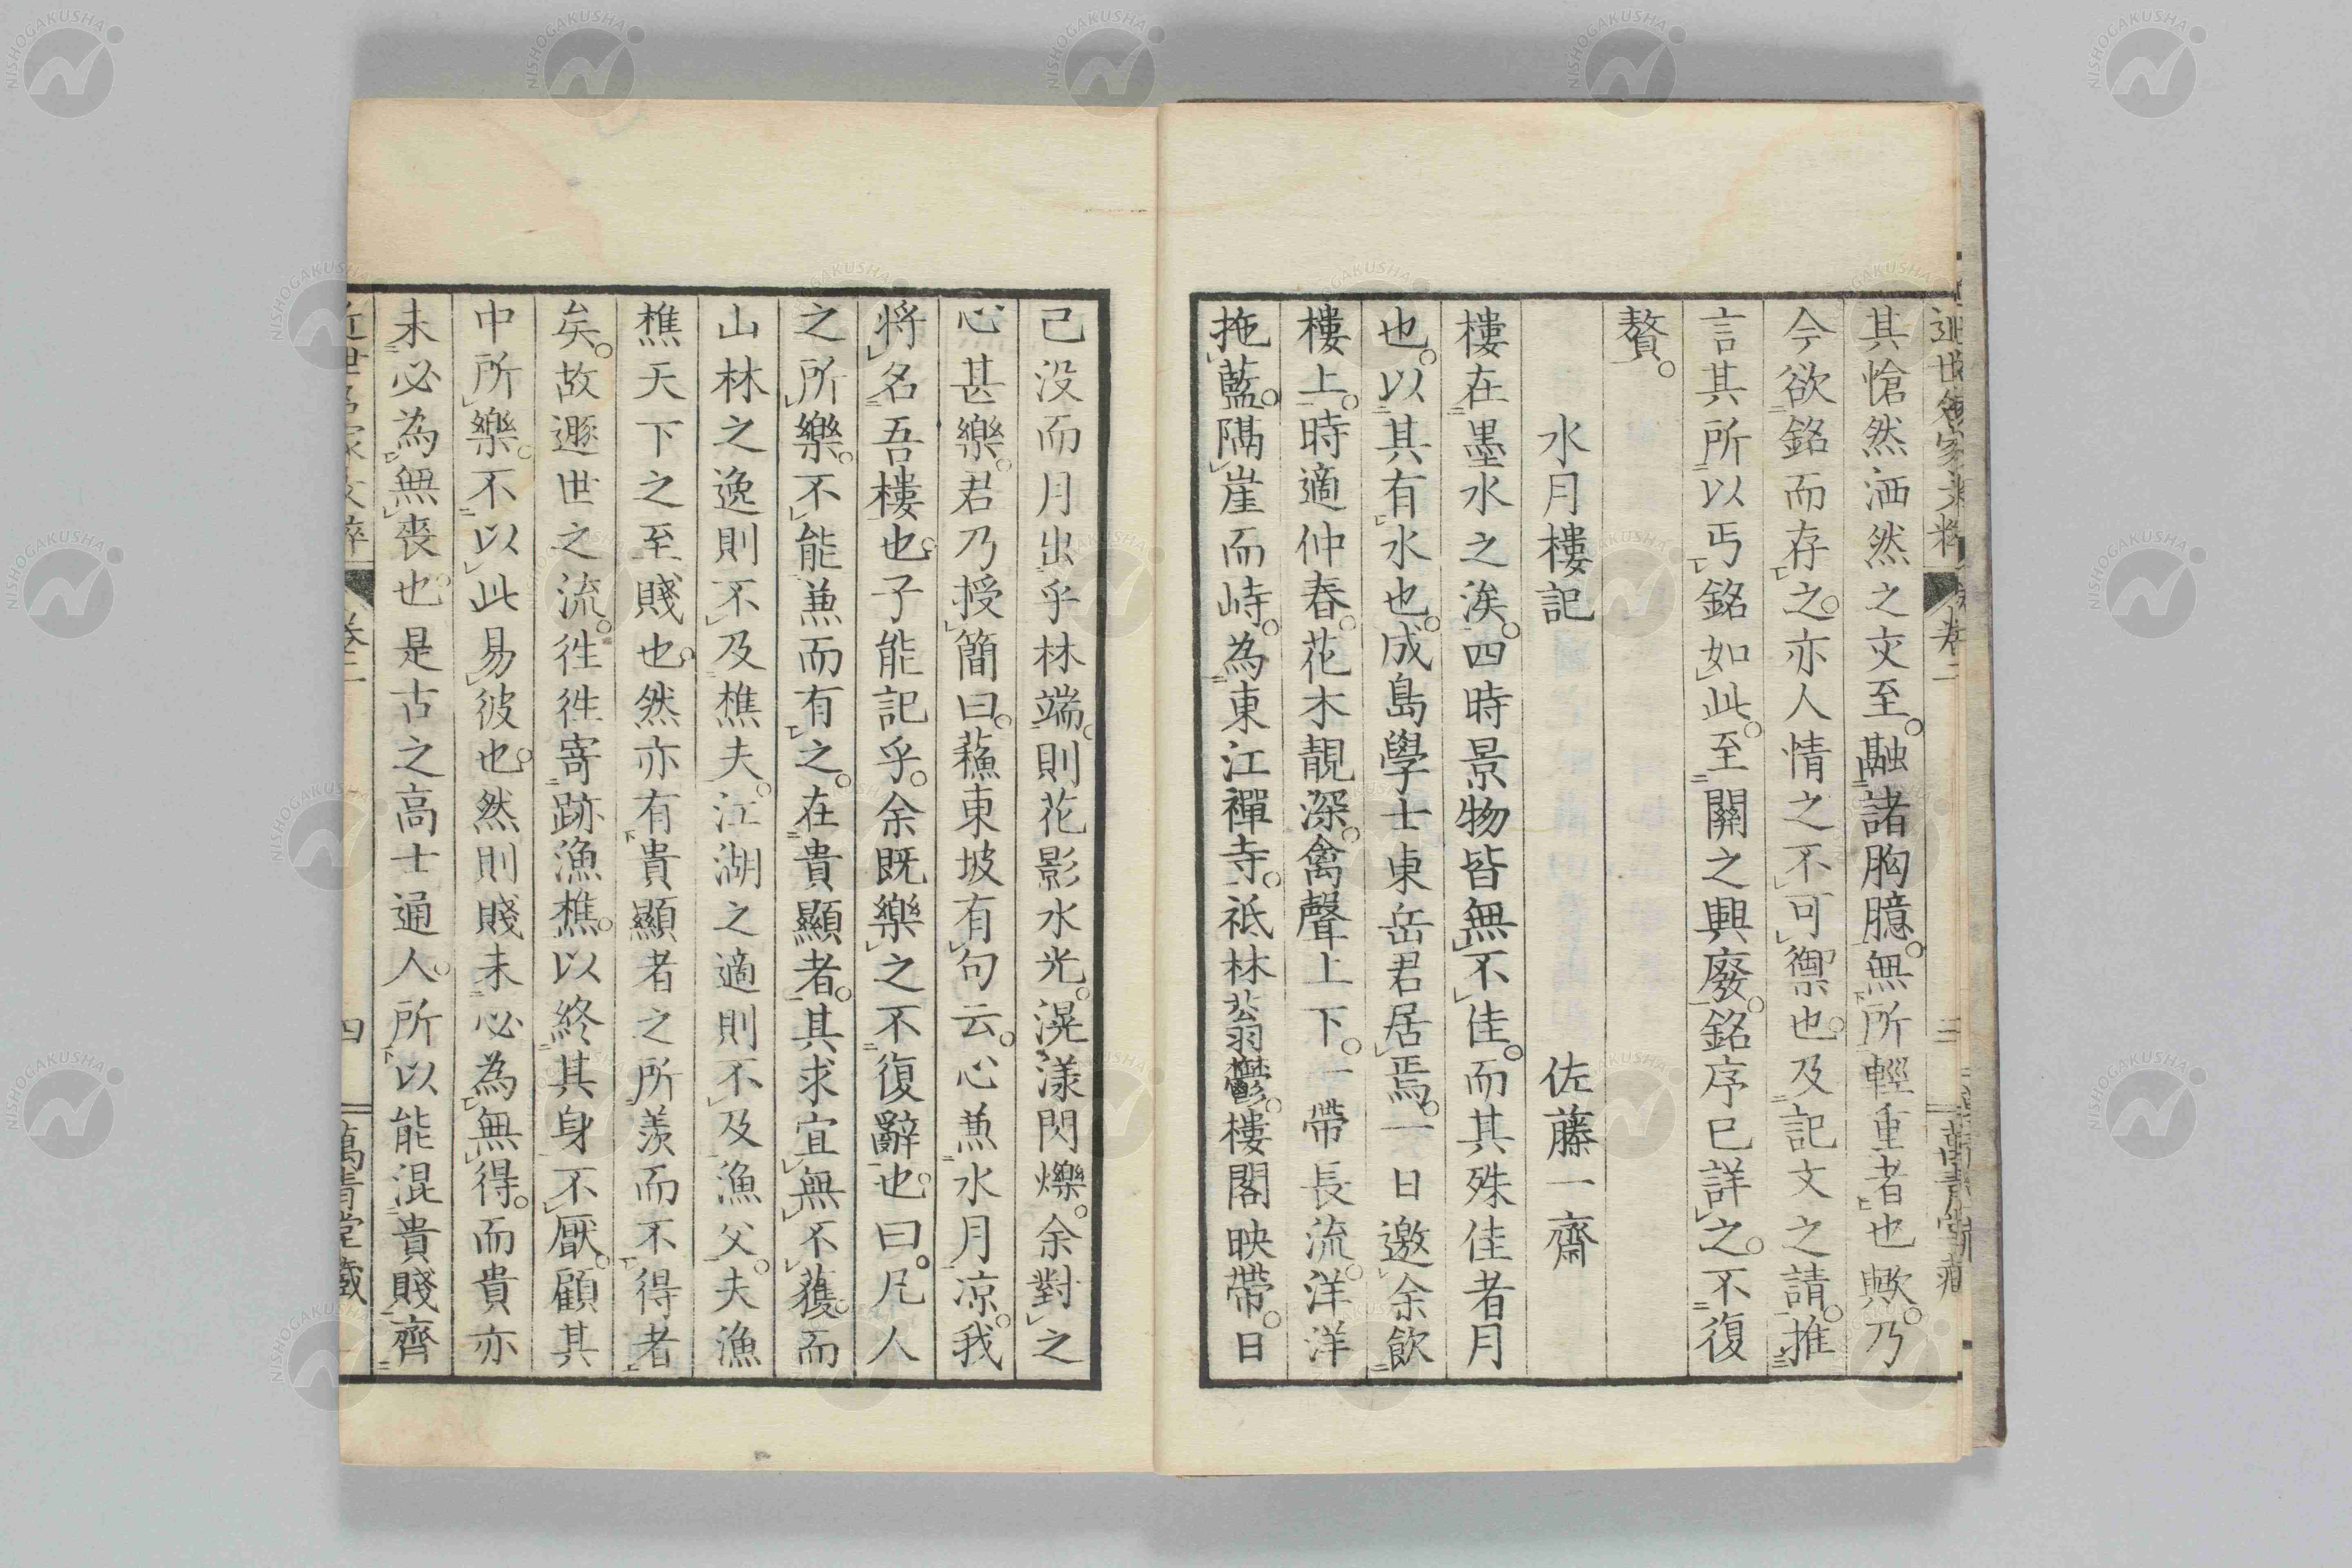 其愴然洒然之交至。融諸胸臆。無所輕重者也歟。乃
今欲銘而存之。亦人情之不可禦也。及記文之請。推
言其所以丐銘如此。至關之興廢。銘序已詳之。不復
贅。
水月樓記 佐藤一齋
樓在墨水之涘。四時景物皆無不佳。而其殊佳者月
也。以其有水也。成島學士東岳君居焉。一日邀余飲
樓上。時適仲春。花木靚深。禽聲上下。一帶長流。洋洋
拖藍。隔崖而峙。為東江禪寺。祗林蓊鬱。樓閣映帶。日
已没而月出乎林端。則花影水光。滉漾閃爍。余對之
心甚樂。君乃授簡曰。蘓東坡有句云。心兼水月凉。我
將名吾樓也。子能記乎。余既樂之不復辭也。曰。凡人
之所樂。不能兼而有之。在貴顯者。其求宜無不獲。而
山林之逸則不及樵夫。江湖之適則不及漁父。夫漁
樵天下之至賤也。然亦有貴顯者之所羨而不得者
矣。故遯世之流。徃徃寄跡漁樵。以終其身不厭。顧其
中所樂。不以此易彼也。然則賤未必為無得。而貴亦
未必為無喪也。是古之高士通人。所以能混貴賤齊
近世名家文粹 卷二 四 萬青堂藏
NISHOGAKUSHA